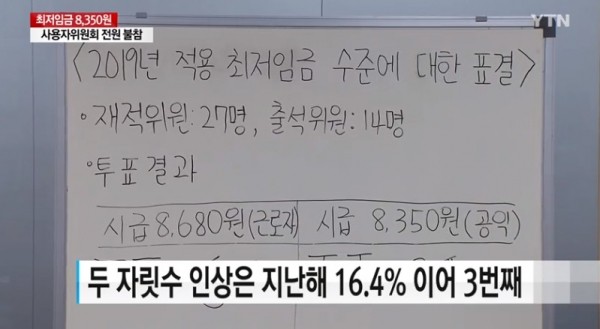 최저임금 8,350원
사용자위원회 전원 불참
YTN
<2019년 적용 최저임금 수준에 대한 표결>
• 재적위원: 27명, 출석위원: 14명
• 투표결과
시급 8,680원(근로자) 시급 8,350원(공익)
두 자릿수 인상은 지난해 16.4% 이어 3번째